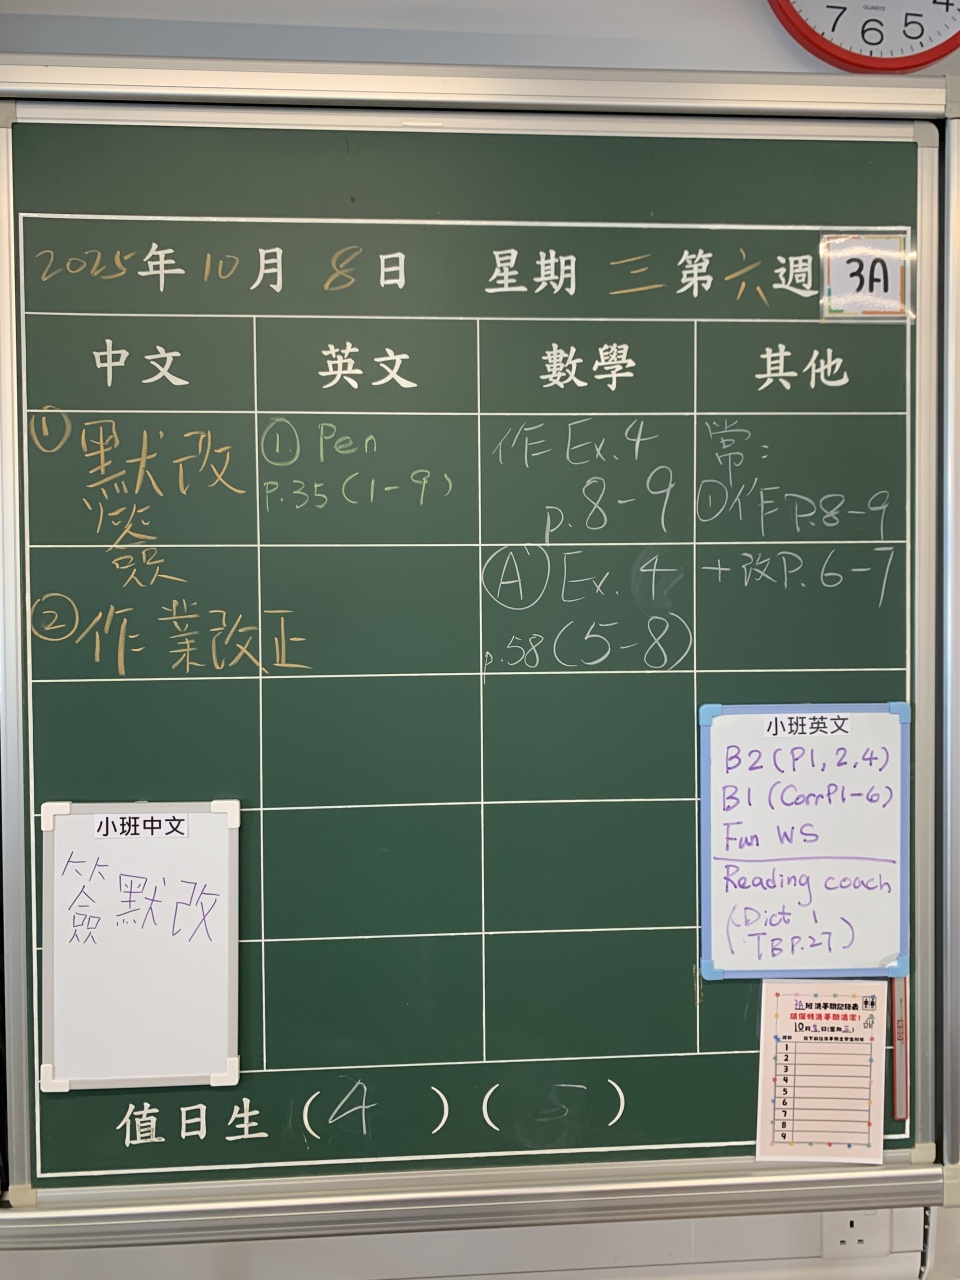 7 6 5 4
QUARTZ
2025年10月8日 星期三第六週 3A
中文 英文 數學 其他
① 默改
簽
② 作業改正
① Pen
p.35(1-9)
作 Ex.4
p.8-9
Ⓐ Ex. 4
p.58(5-8)
常:
①作P.8-9
+改P.6-7
小班中文
簽默改
小班英文
B2(P1,2,4)
B1(CorrP1-6)
Fun WS
Reading coach
(Dict 1
TBP.27)
3A班洗手間記錄表
請保持洗手間清潔!
10月8日(星期三)
1
2
3
4
5
6
7
8
9
值日生(4)(5)